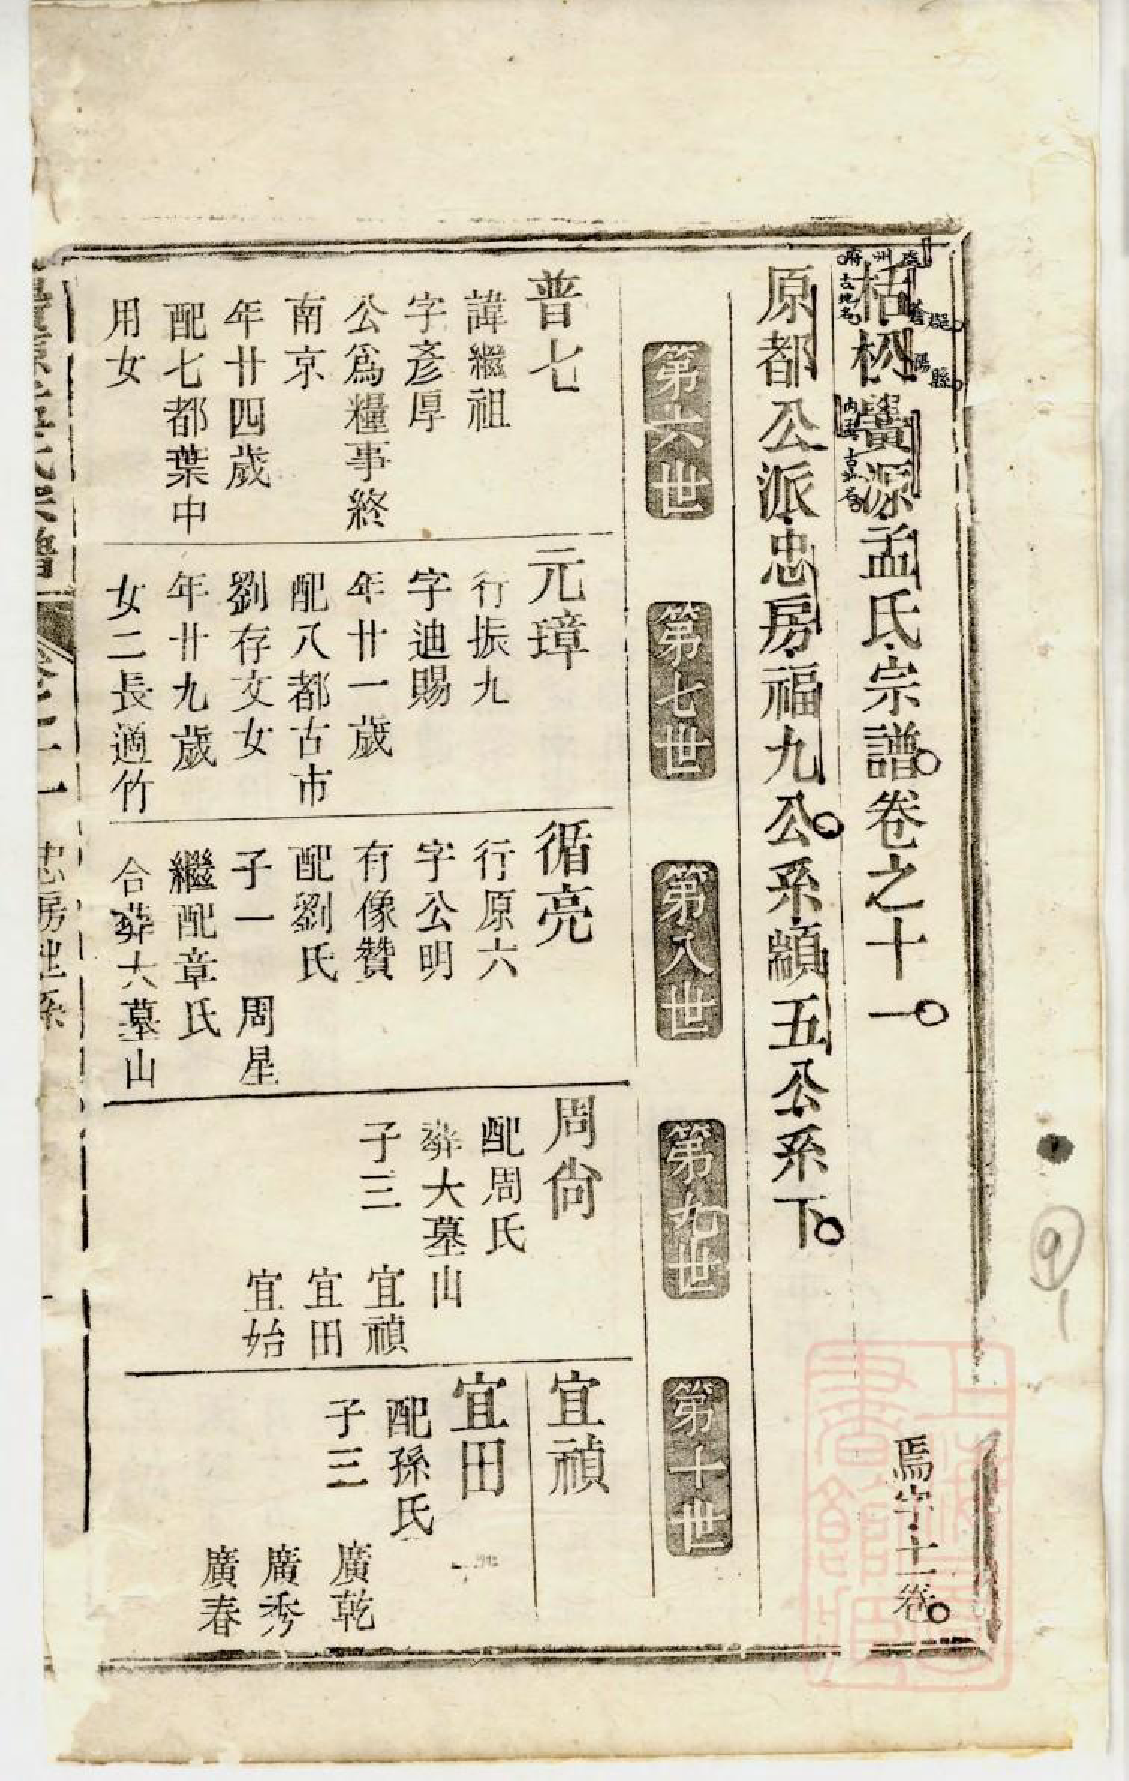 栝松黌源孟氏宗譜卷之十一
焉字十一卷
原都公派忠房福九公系顓五公系下
第六世
第七世
第八世
第九世
第十世
普七
諱繼祖
字彥厚
公爲糧事終
南京
年廿四歲
配七都葉中
用女
元璋
行振九
字迪賜
年廿一歲
配八都古市
劉存文女
年廿九歲
女二長適竹
循亮
行原六
字公明
有像贊
配劉氏
子一 周星
繼配章氏
合葬大墓山
周尙
配周氏
葬大墓山
子三 宜禎
宜田
宜始
宜禎
宜田
配孫氏
子三 廣乾
廣秀
廣春
氏宗譜
卷之十一
忠房世系